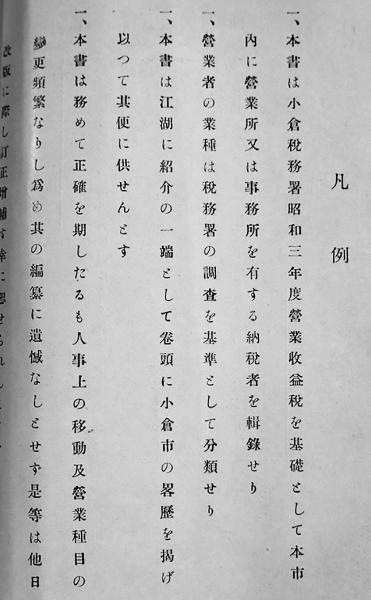 凡例
一、本書は小倉税務署昭和三年度營業收益税を基礎として本市
內に營業所又は事務所を有する納税者を輯錄せり
一、營業者の業種は税務署の調査を基準として分類せり
一、本書は江湖に紹介の一端として卷頭に小倉市の畧歷を揭げ
以つて其便に供せんとす
一、本書は務めて正確を期したるも人事上の移動及營業種目の
變更頻繁なりし爲め其の編纂に遺憾なしとせず是等は他日
改版に際し訂正增補す幸に恕せられん